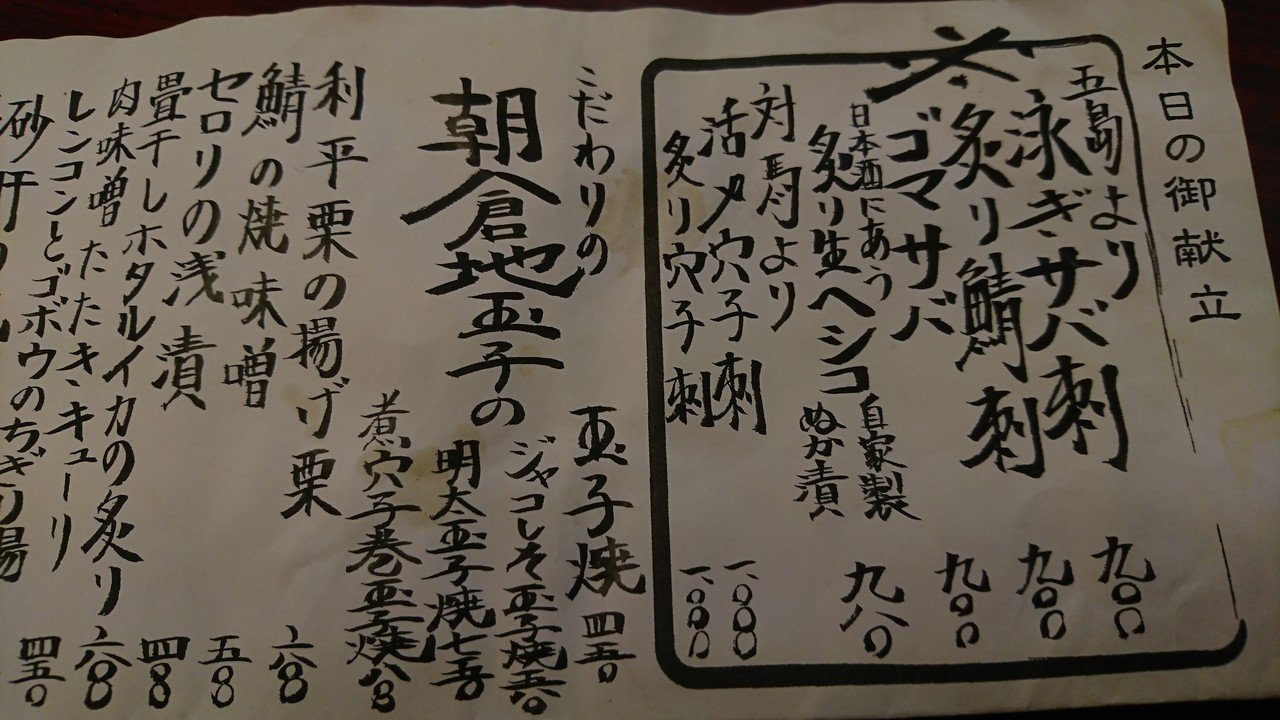 本日の御献立
五島より
泳ぎサバ刺 九〇〇
炙り鯖刺 九〇〇
ゴマサバ 九〇〇
日本酒にあう
炙り生ヘシコ 自家製 ぬか漬 九八〇
対馬より
活〆穴子刺 一、〇〇〇
炙り穴子刺 一、〇〇〇
こだわりの
朝倉地玉子の
玉子焼 四五〇
ジャコしそ玉子焼 五八〇
明太玉子焼 七五〇
煮穴子巻玉子焼 八八〇
利平栗の揚げ栗
鯖の焼味噌 六八〇
セロリの浅漬 五八〇
畳干しホタルイカの炙り 四八〇
肉味噌たたきキューリ 六八〇
レンコンとゴボウのちぎり揚 四五〇
砂肝の